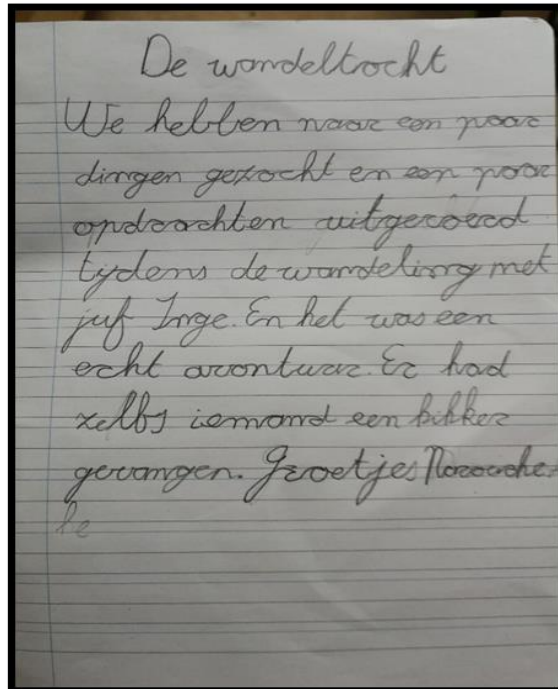 De wandeltocht
We hebben naar een paar
dingen gezocht en een paar
opdrachten uitgevoerd
tijdens de wandeling met
juf Inge. En het was een
echt avontuur. Er had
zelfs iemand een kikker
gevangen. Groetjes